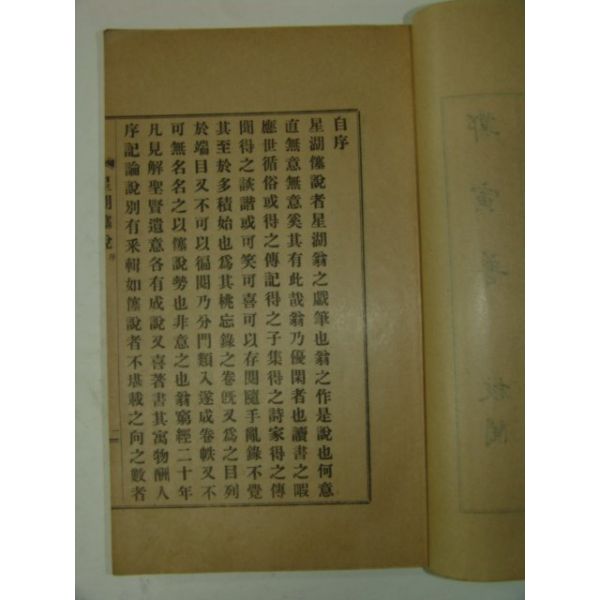 自序
星湖僿說者星湖翁之戱筆也翁之作是說也何意
直無意無意奚其有此哉翁乃優閑者也讀書之暇
應世循俗或得之傳記得之子集得之詩家得之傳
聞得之談諧或可笑可喜可以存閱隨手亂錄不覺
其至於多積始也爲其桃忘錄之卷旣又爲之目列
於端目又不可以徧閱乃分門類入遂成卷帙又不
可無名名之以僿說勢也非意之也翁窮經二十年
凡見解聖賢遺意各有成說又喜著書其寓物酬人
序記論說別有采輯如僿說者不堪載之向之數者
星湖僿說 序
二
鄭寅著 校閱